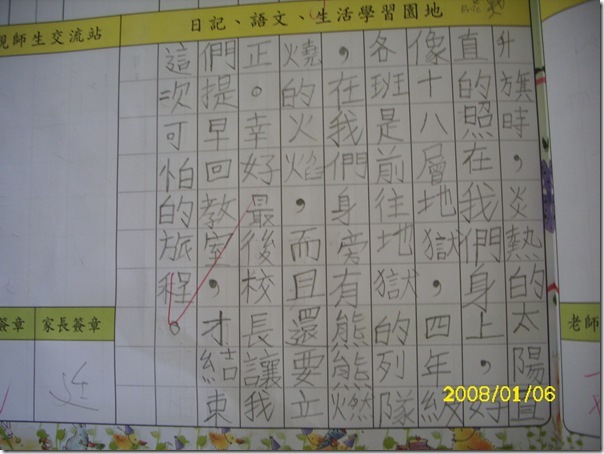 日記、語文、生活學習園地
升旗時，炎熱的太陽直
直的照在我們身上，好
像十八層地獄，四年級
各班是前往地獄的列隊
，在我們身旁有熊熊燃
燒的火焰，而且還要立
正。幸好最後校長讓我
們提早回教室，才結束
這次可怕的旅程。
親師生交流站
老師
家長簽章
簽章
2008/01/06